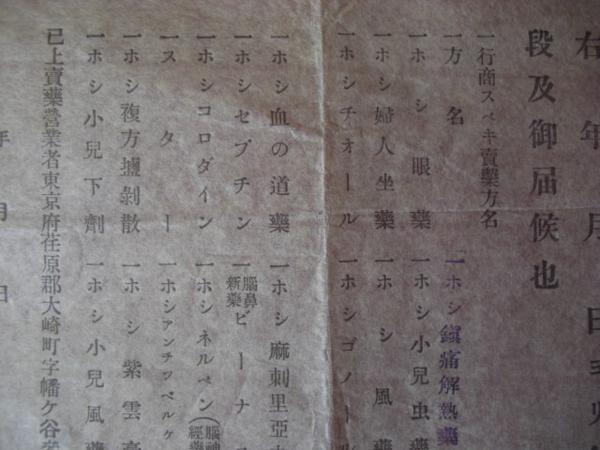 右 年 月 日
段及御届候也
一行商スベキ賣藥方名
一方名
一ホシ鎭痛解熱藥
一ホシ眼藥
一ホシ小兒虫藥
一ホシ婦人坐藥
一ホシ風藥
一ホシチオール
一ホシゴノー
一ホシ血の道藥
一ホシ麻刺里亞
一ホシセプチン
一腦鼻新藥ビーナス
一ホシコロダイン
一ホシネルベン(腦神經藥
一スター
一ホシアンチッベルケ
一ホシ複方墟剝散
一ホシ紫雲膏
一ホシ小兒下劑
一ホシ小兒風藥
已上賣藥營業者東京府荏原郡大崎町字幡ケ谷
年 月 日